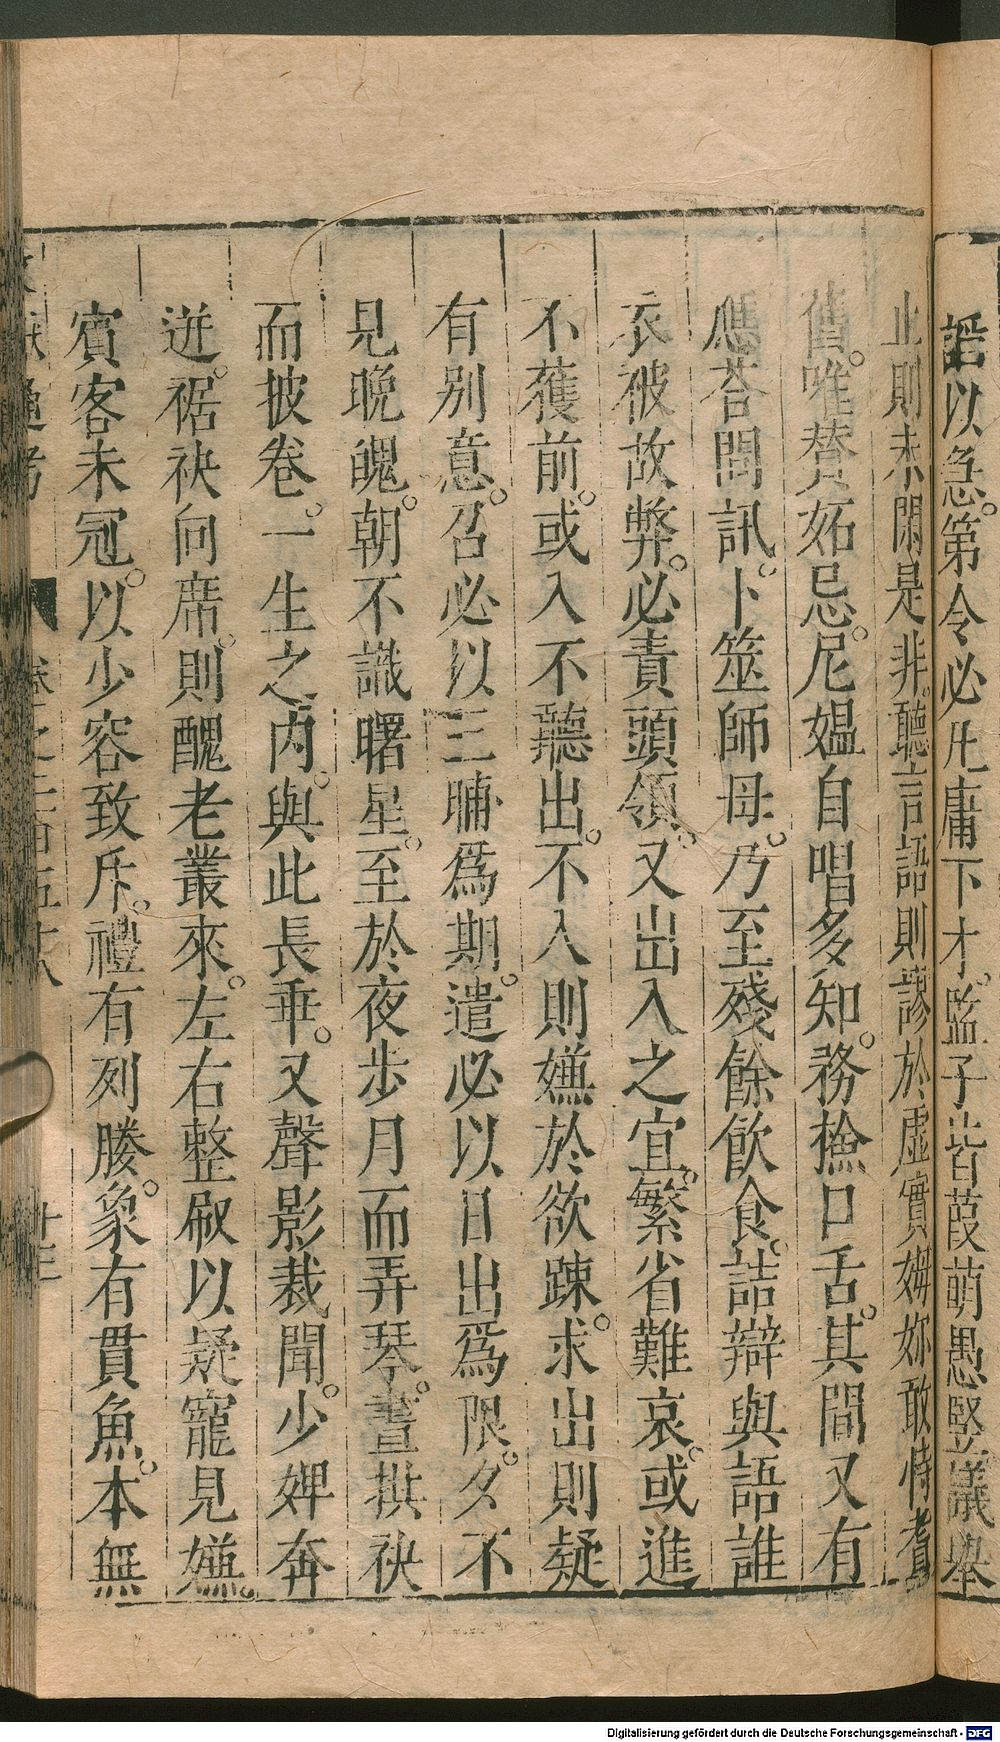 諾以急。第令必凡庸下才。監子皆葭萌愚竪。議舉
止則未閑是非。聽言語則謬於虛實。姆妳敢恃耆
舊。唯贊妬忌。尼媼自唱多知。務檢口舌。其間又有
應荅問訊。卜筮師母。乃至殘餘飲食。詰辯與語誰
衣被故弊。必責頭領。又出入之宜。繁省難哀。或進
不獲前。或入不聽出。不入則嫌於欲踈。求出則疑
有別意。召必以三晡爲期。遣必以日出爲限。夕不
見晩魄。朝不識曙星。至於夜步月而弄琴。晝拱袂
而披卷。一生之內。與此長乖。又聲影裁聞。少婢奔
迸。裾袂向席。則醜老叢來。左右整刷以疑寵見嫌。
賓客未冠。以少容致斥。禮有列媵。象有貫魚。本無
文獻通考 卷之二百五十八 十三
Digitalisierung gefördert durch die Deutsche Forschungsgemeinschaft - DFG